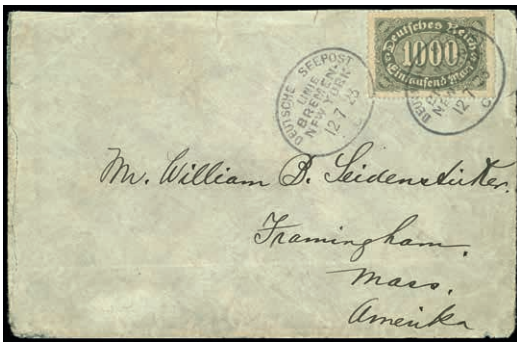 Deutsches Reich
1000
Eintausend Mark
DEUTSCHE SEEPOST
LINIE
BREMEN-
NEW YORK
12·7 23
C
12·7
C
Mr. William B. Seidenstücker.
Framingham.
Mass.
Amerika